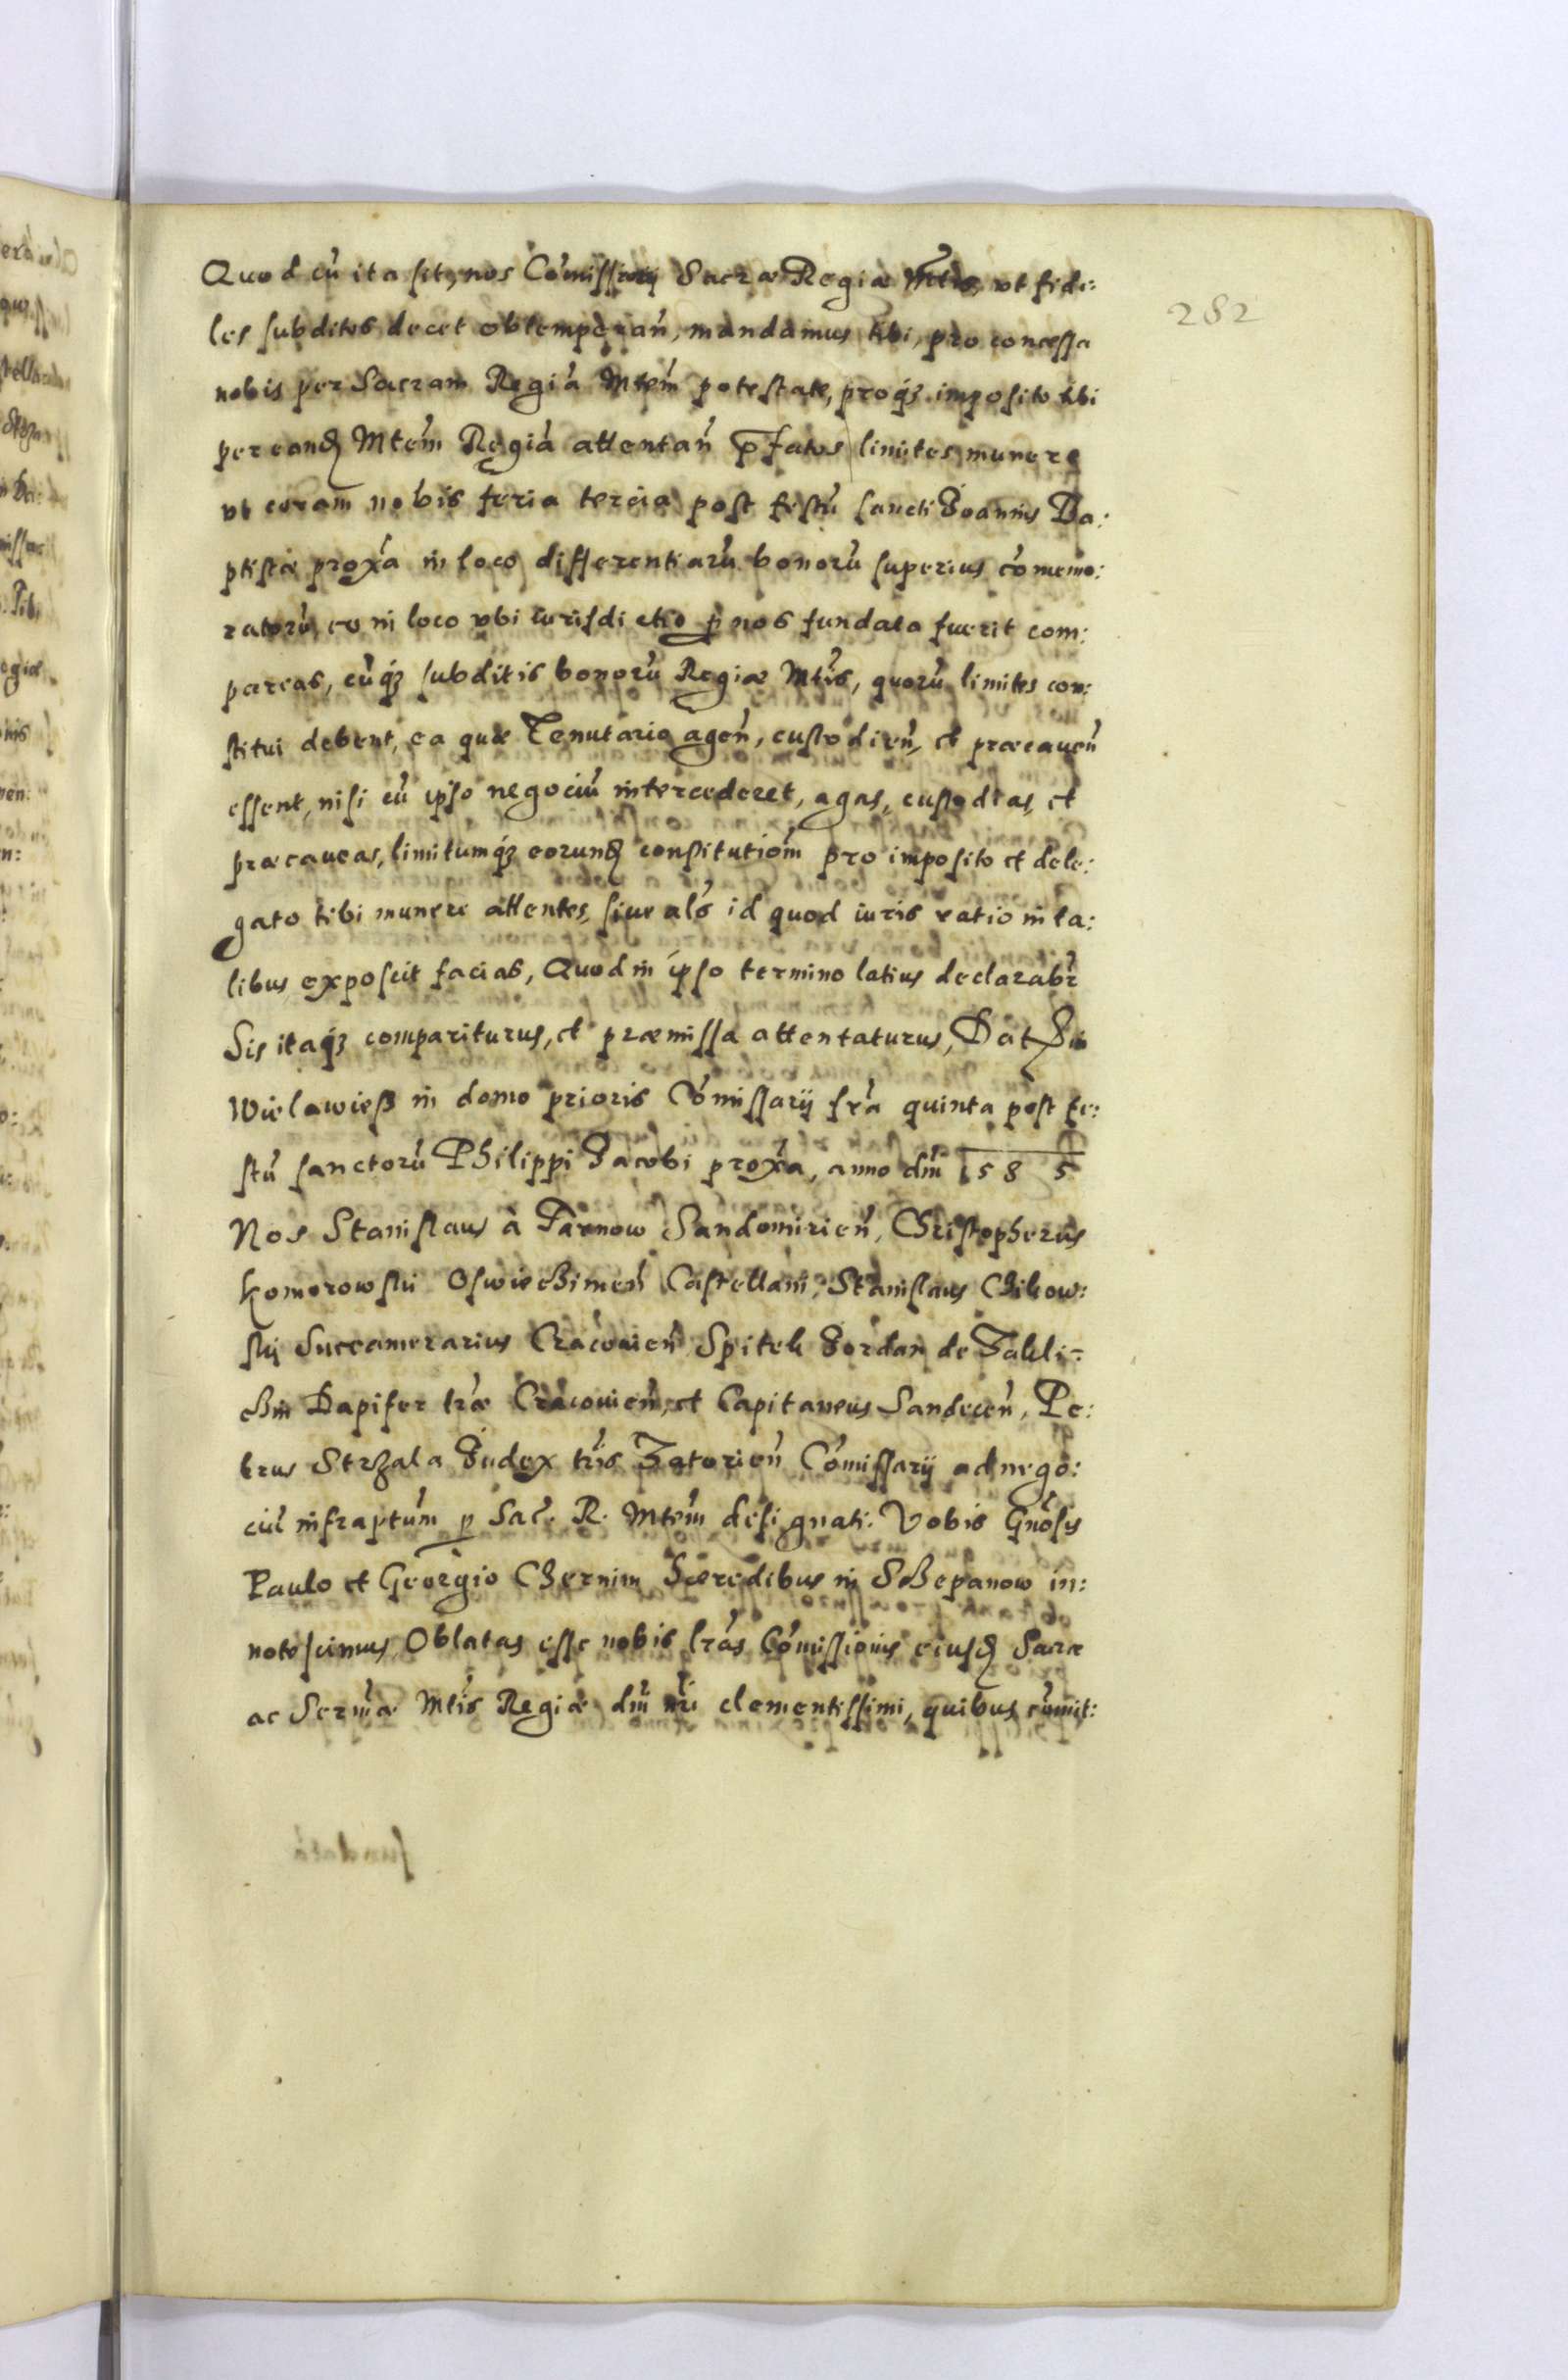 282
Quod cū ita sit, nos Cōmissarij Sacræ Regiæ Mtis, vt fide:
les subditos decet obtemperan̄, mandamus tibi, pro concessa
nobis per Sacram Regiā Mtem̄ potestate, proq́ꝫ imposito tibi
per eand̄ Mtem̄ Regiā attentan̄ p̄fatos limites munere
vt coram nobis feria tercia post festū sancti Joannis Ba:
ptistæ proxā in loco differentiarū bonorū superius cōmemo:
ratorū, eo in loco vbi iurisdictio ꝑ nos fundata fuerit com:
pareas, cūq́ꝫ subditis bonorū Regiæ Mtis, quorū limites con:
stitui debent, ea quæ Tenutario agen̄, custodien̄, et præcauen̄
essent, nisi cū ipso negociū intercederet, agas, custodias, et
præcaueas, limitumq́ꝫ eorund̄ constitutiōm pro imposito et dele:
gato tibi munere attentes, siue al̄s id quod iuris ratio in ta:
libus exposcit facias, Quod in ipso termino latius declarabr̄
Sis itaq́ꝫ compariturus, et præmissa attentaturus, Dat̄ in
Wielawieß in domo prioris Cōmissarij fr̄a quinta post fe:
stū sanctorū Philippi Jacobi proxā, anno dm̄ 1585
Nos Stanislaus à Tarnow Sandomirien̄, Christopherus
Komorowski Oswiechimen̄ Castellani, Stanislaus Chikow:
ski Succamerarius Cracouien̄ Spitek Jordan de Zakli:
chin Dapifer tr̄æ Cracouien̄, et Capitaneus Sandecen̄, Pe:
trus Strzala Judex tr̄is Zatorien̄ Cōmissarij ad nego:
ciū infraptūm ꝑ Sac̄. R. Mtem̄ designati: Vobis Gn̄osis
Paulo et Georgio Chernim Hæredibus in Schepanow in:
notescimus Oblatas esse nobis lr̄as Cōmissionis eiusd̄ Sacræ
ac Serm̄æ Mtis Regiæ dm̄ nr̄i clementissimi, quibus cūmit: